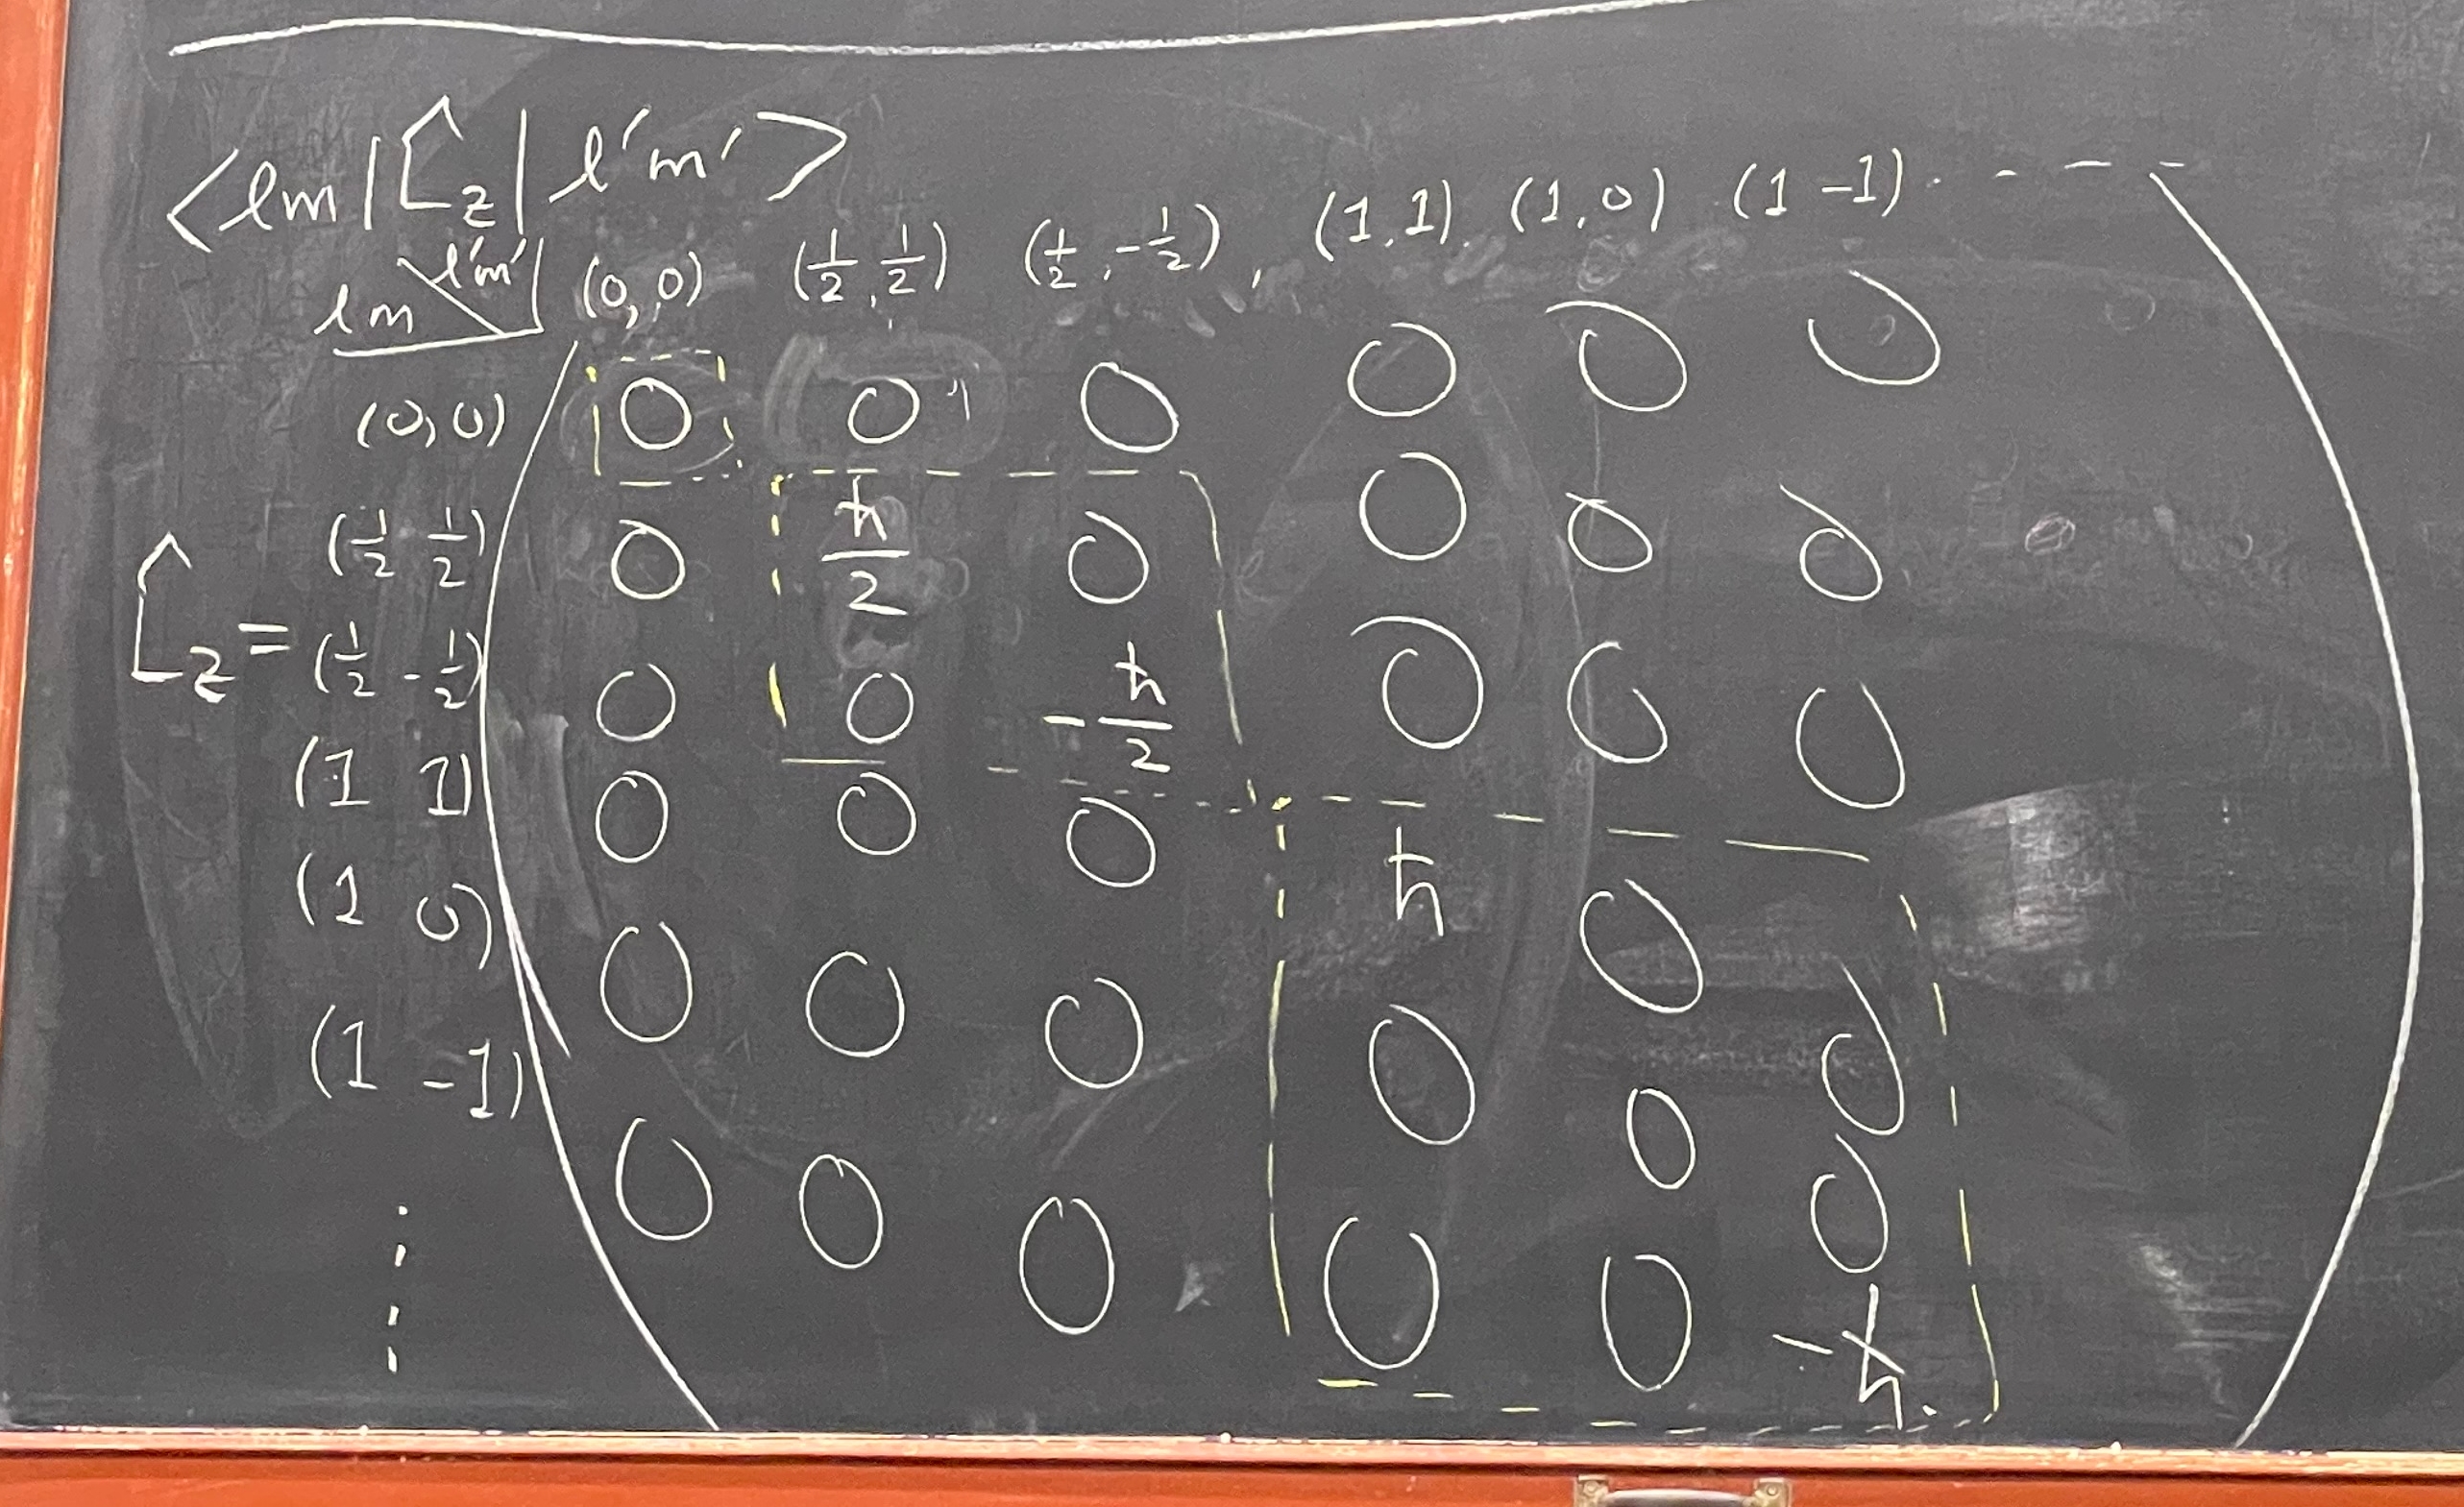 <lm|L̂z|l'm'>
lm \ l'm' (0,0) (1/2,1/2) (1/2,-1/2), (1,1). (1,0) (1 -1) . - - - -
(0,0) 0 0 0 0 0 0
(1/2 1/2) 0 ħ/2 0 0 0 0
L̂z = (1/2 -1/2) 0 0 -ħ/2 0 0 0
(1 1) 0 0 0 ħ 0 0
(1 0) 0 0 0 0 0 0
(1 -1) 0 0 0 0 0 -ħ.
⋮